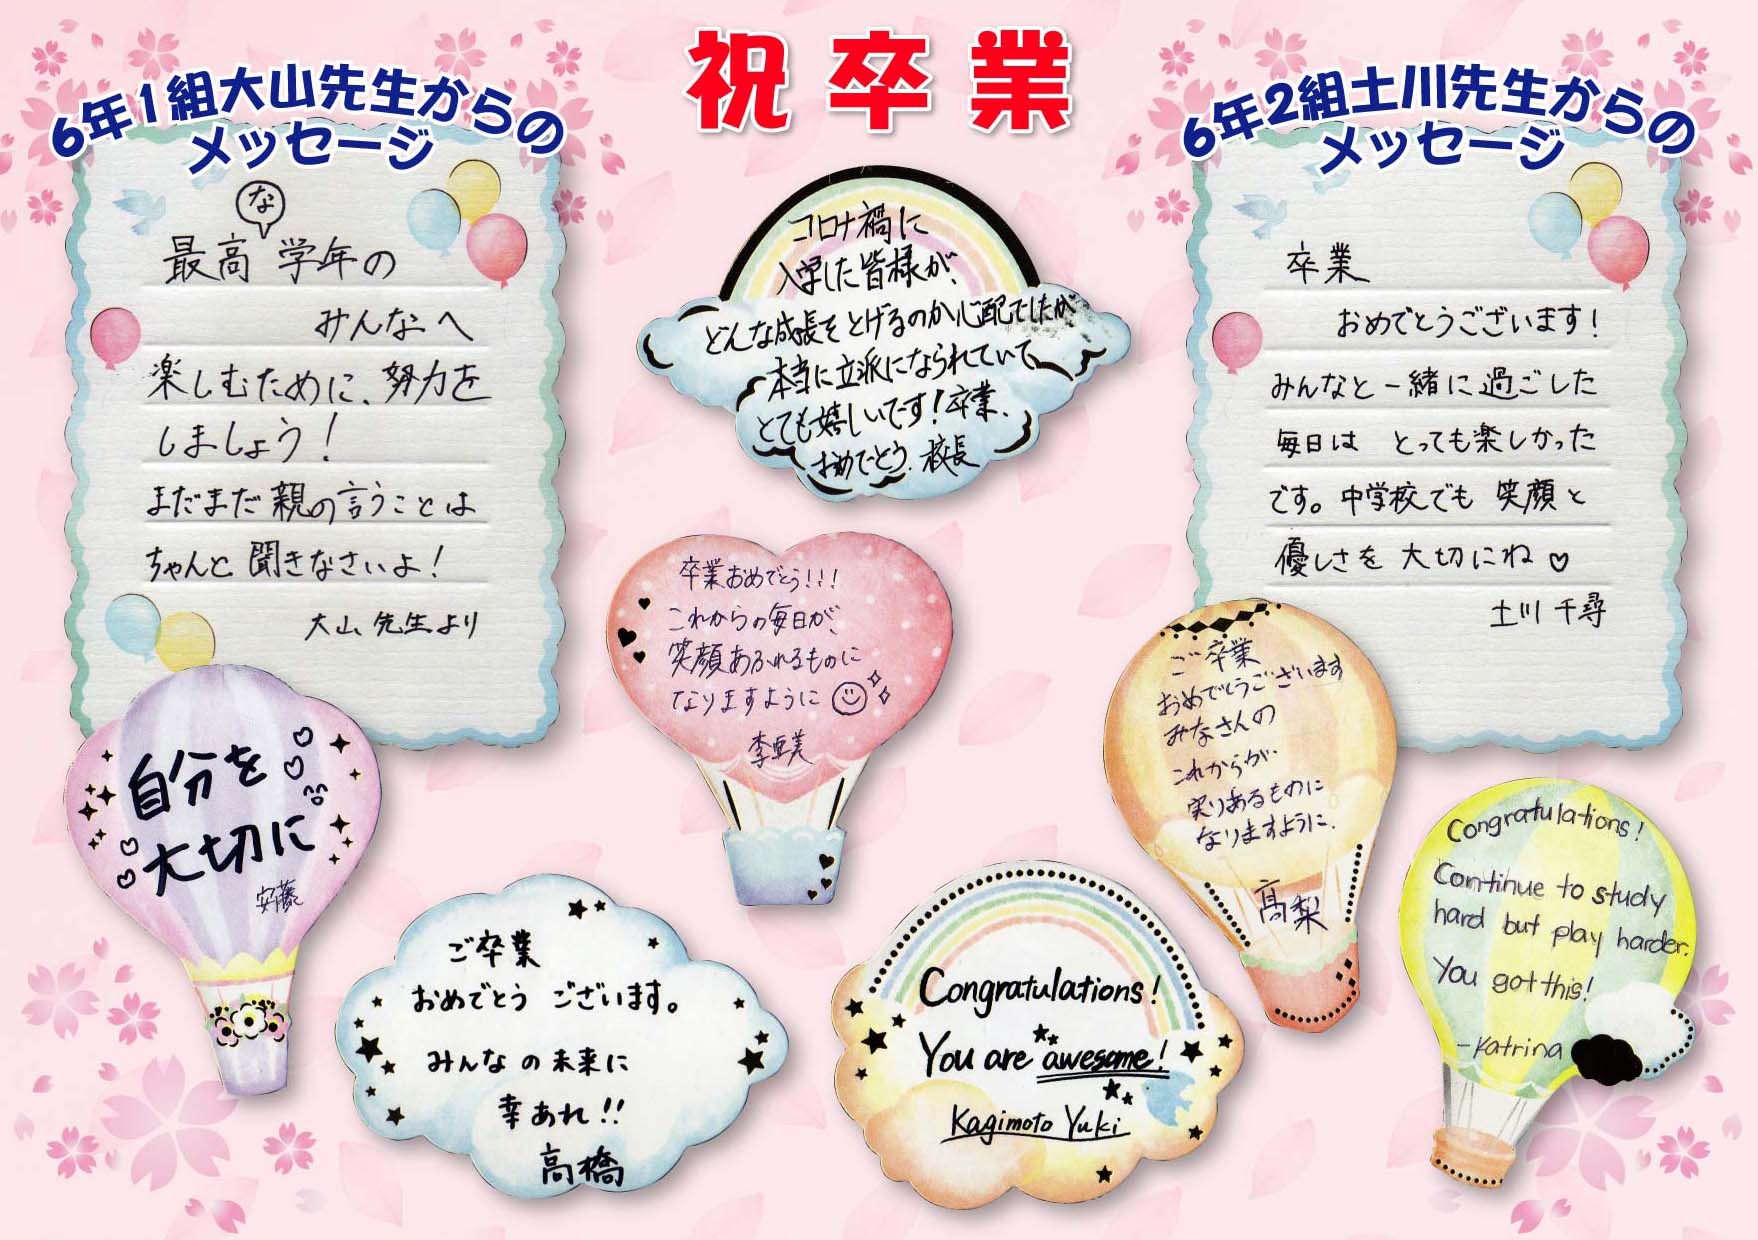 祝卒業
6年1組大山先生からの
メッセージ
な
最高 学年の
みんなへ
楽しむために、努力を
しましょう!
まだまだ親の言うことは
ちゃんと聞きなさいよ!
大山先生より
コロナ禍に
入学した皆様が、
どんな成長をとげるのか心配でしたが
本当に立派になられていて、
とても嬉しいです!卒業、
おめでとう。校長
6年2組土川先生からの
メッセージ
卒業
おめでとうございます!
みんなと一緒に過ごした
毎日は とっても楽しかった
です。中学校でも 笑顔と
優しさを 大切にね♡
土川 千尋
卒業おめでとう!!!
これからの毎日が、
笑顔あふれるものに
なりますように
李亜美
ご卒業
おめでとうございます
みなさんの
これからが
実りあるものに
なりますように.
高梨
自分を
大切に
安藤
ご卒業
おめでとう ございます。
みんなの未来に
幸あれ!!
高橋
Congratulations!
You are awesome!
Kagimoto Yuki
Congratulations!
Continue to study
hard but play harder.
You got this!
-Katrina